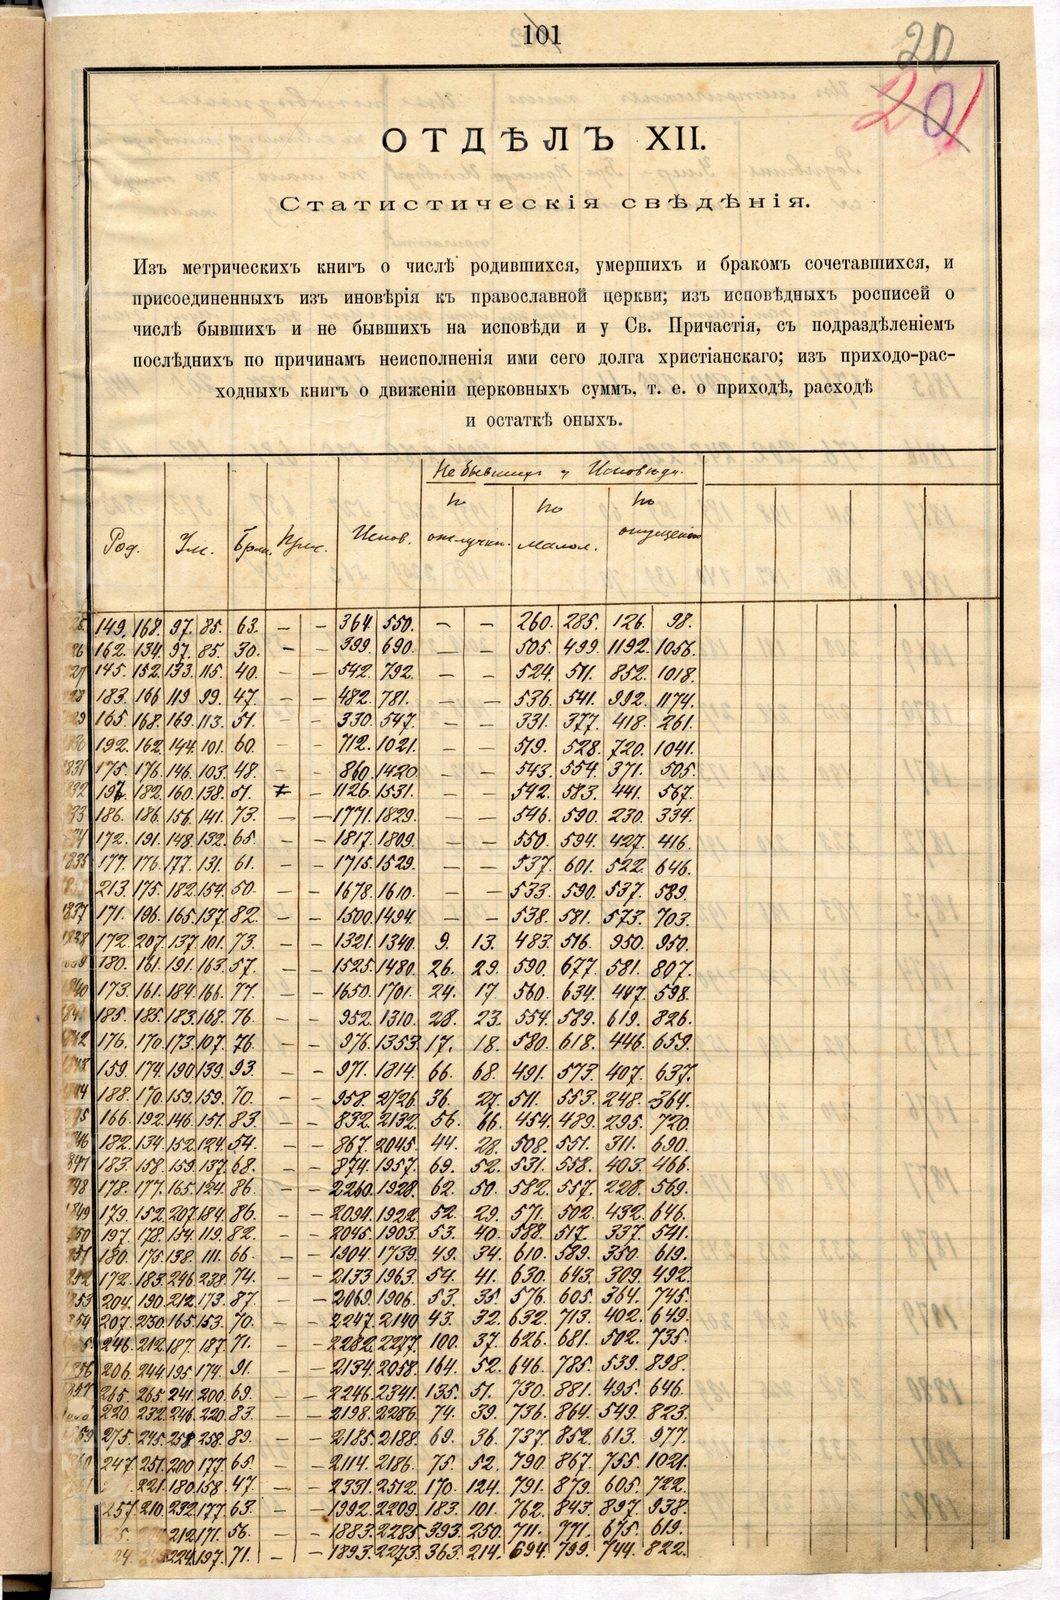 101
20
201
ОТДѢЛЪ XII.
Статистическія свѣдѣнія.
Изъ метрическихъ книгъ о числѣ родившихся, умершихъ и бракомъ сочетавшихся, и
присоединенныхъ изъ иновѣрія къ православной церкви; изъ исповѣдныхъ росписей о
числѣ бывшихъ и не бывшихъ на исповѣди и у Св. Причастія, съ подраздѣленіемъ
послѣднихъ по причинамъ неисполненія ими сего долга христіанскаго; изъ приходо-рас-
ходныхъ книгъ о движеніи церковныхъ суммъ, т. е. о приходѣ, расходѣ
и остаткѣ оныхъ.
Не бывшихъ у Исповѣди.
Род. Ум. Брак. Испов. по отлучки. по малол. по опущенію
149. 168. 97. 85. 63. – – 364. 550. – – 260. 285. 126. 98.
162. 134. 97. 85. 30. – – 399. 690. – – 505. 499. 1192. 1056.
145. 152. 133. 115. 40. – – 542. 792. – – 524. 511. 852. 1018.
183. 166. 119. 99. 47. – – 482. 781. – – 536. 541. 992. 1174.
165. 168. 169. 113. 51. – – 330. 547. – – 331. 377. 418. 261.
192. 162. 144. 101. 60. – – 712. 1021. – – 519. 528. 720. 1041.
1831 175. 176. 146. 103. 48. – – 860. 1420. – – 543. 554. 371. 505.
182. 160. 138. 51. – 1126. 1531. – – 542. 583. 441. 567.
186. 186. 156. 141. 73. – – 1771. 1829. – – 546. 590. 230. 334.
172. 191. 148. 132. 65. – – 1817. 1809. – – 550. 594. 427. 416.
1835 177. 176. 177. 131. 61. – – 1715. 1529. – – 537. 601. 522. 646.
213. 175. 182. 154. 50. – – 1678. 1610. – – 533. 590. 537. 589.
1837 171. 196. 165. 137. 82. – – 1500. 1494. – – 538. 581. 573. 703.
1838 172. 207. 137. 101. 73. – – 1321. 1340. 9. 13. 483. 516. 950. 950.
180. 161. 191. 163. 57. – – 1525. 1480. 26. 29. 590. 677. 581. 807.
173. 161. 184. 166. 77. – – 1650. 1701. 24. 17 560. 634. 447. 598.
185. 185. 183. 168. 76. – – 952. 1310. 28. 23. 554. 589. 619. 826.
176. 170. 173. 107. 76. – – 976. 1353. 17. 18. 580. 618. 446. 659.
159. 174. 190. 139. 93. – – 971. 1814. 66. 68. 491. 573. 407. 637.
188. 170. 159. 159. 70. – – 958. 2726. 36. 27. 511. 553. 248. 364.
166. 192. 146. 151. 83. – – 832. 2132. 56. 66. 454. 489. 295. 720.
182. 134. 152. 124. 54. – – 867. 2045. 44. 28. 508. 551. 311. 690.
183. 158. 159. 137. 68. – – 874. 1957. 69. 52. 531. 558. 403. 466.
178. 177. 165. 124. 86. – – 2260. 1928. 62. 50. 582. 557. 228. 569.
179. 152. 207. 184. 86. – – 2094. 1922. 52. 29. 571. 502. 432. 646.
197. 178. 154. 119. 82. – – 2045. 1903. 53. 40. 588. 517. 337. 541.
180. 175. 138. 111. 66. – – 1904. 1739. 49. 34. 610. 589. 350. 619.
172. 183. 246. 238. 74. – – 2133. 1963. 54. 41. 630. 643. 309. 492.
204. 190. 212. 173. 87. – – 2069. 1906. 53. 35. 576. 605. 364. 745.
207. 230. 165. 153. 70. – – 2247. 2140 43. 32. 632. 713. 402. 649.
246. 212. 187. 187. 71. – – 2282. 2277. 100. 37. 626. 681. 502. 735.
206. 244. 195. 174. 91. – – 2134. 2058. 164. 52. 646. 785. 539. 898.
265. 265. 241. 200. 69. – – 2246. 2341. 135. 51. 730. 881. 495. 646.
220. 232. 246. 220. 83. – – 2198. 2286. 74. 39. 736. 864. 549. 823.
275. 245. 258. 258. 89. – – 2185. 2188. 69. 36. 737. 852. 613. 977.
247. 251. 200. 177. 65. – – 2114. 2186. 75. 52. 790. 867. 755. 1021.
221. 180. 158. 47. – – 2331. 2512. 170. 124. 791. 879. 605. 722.
257. 210. 232. 177. 63. – – 1992. 2209. 183. 101. 762. 843. 897. 938.
212. 171. 56. – – 1883. 2285. 393. 250. 711. 771. 675. 619.
224. 197. 71. – – 1893. 2273. 363. 214. 694. 799. 744. 822.